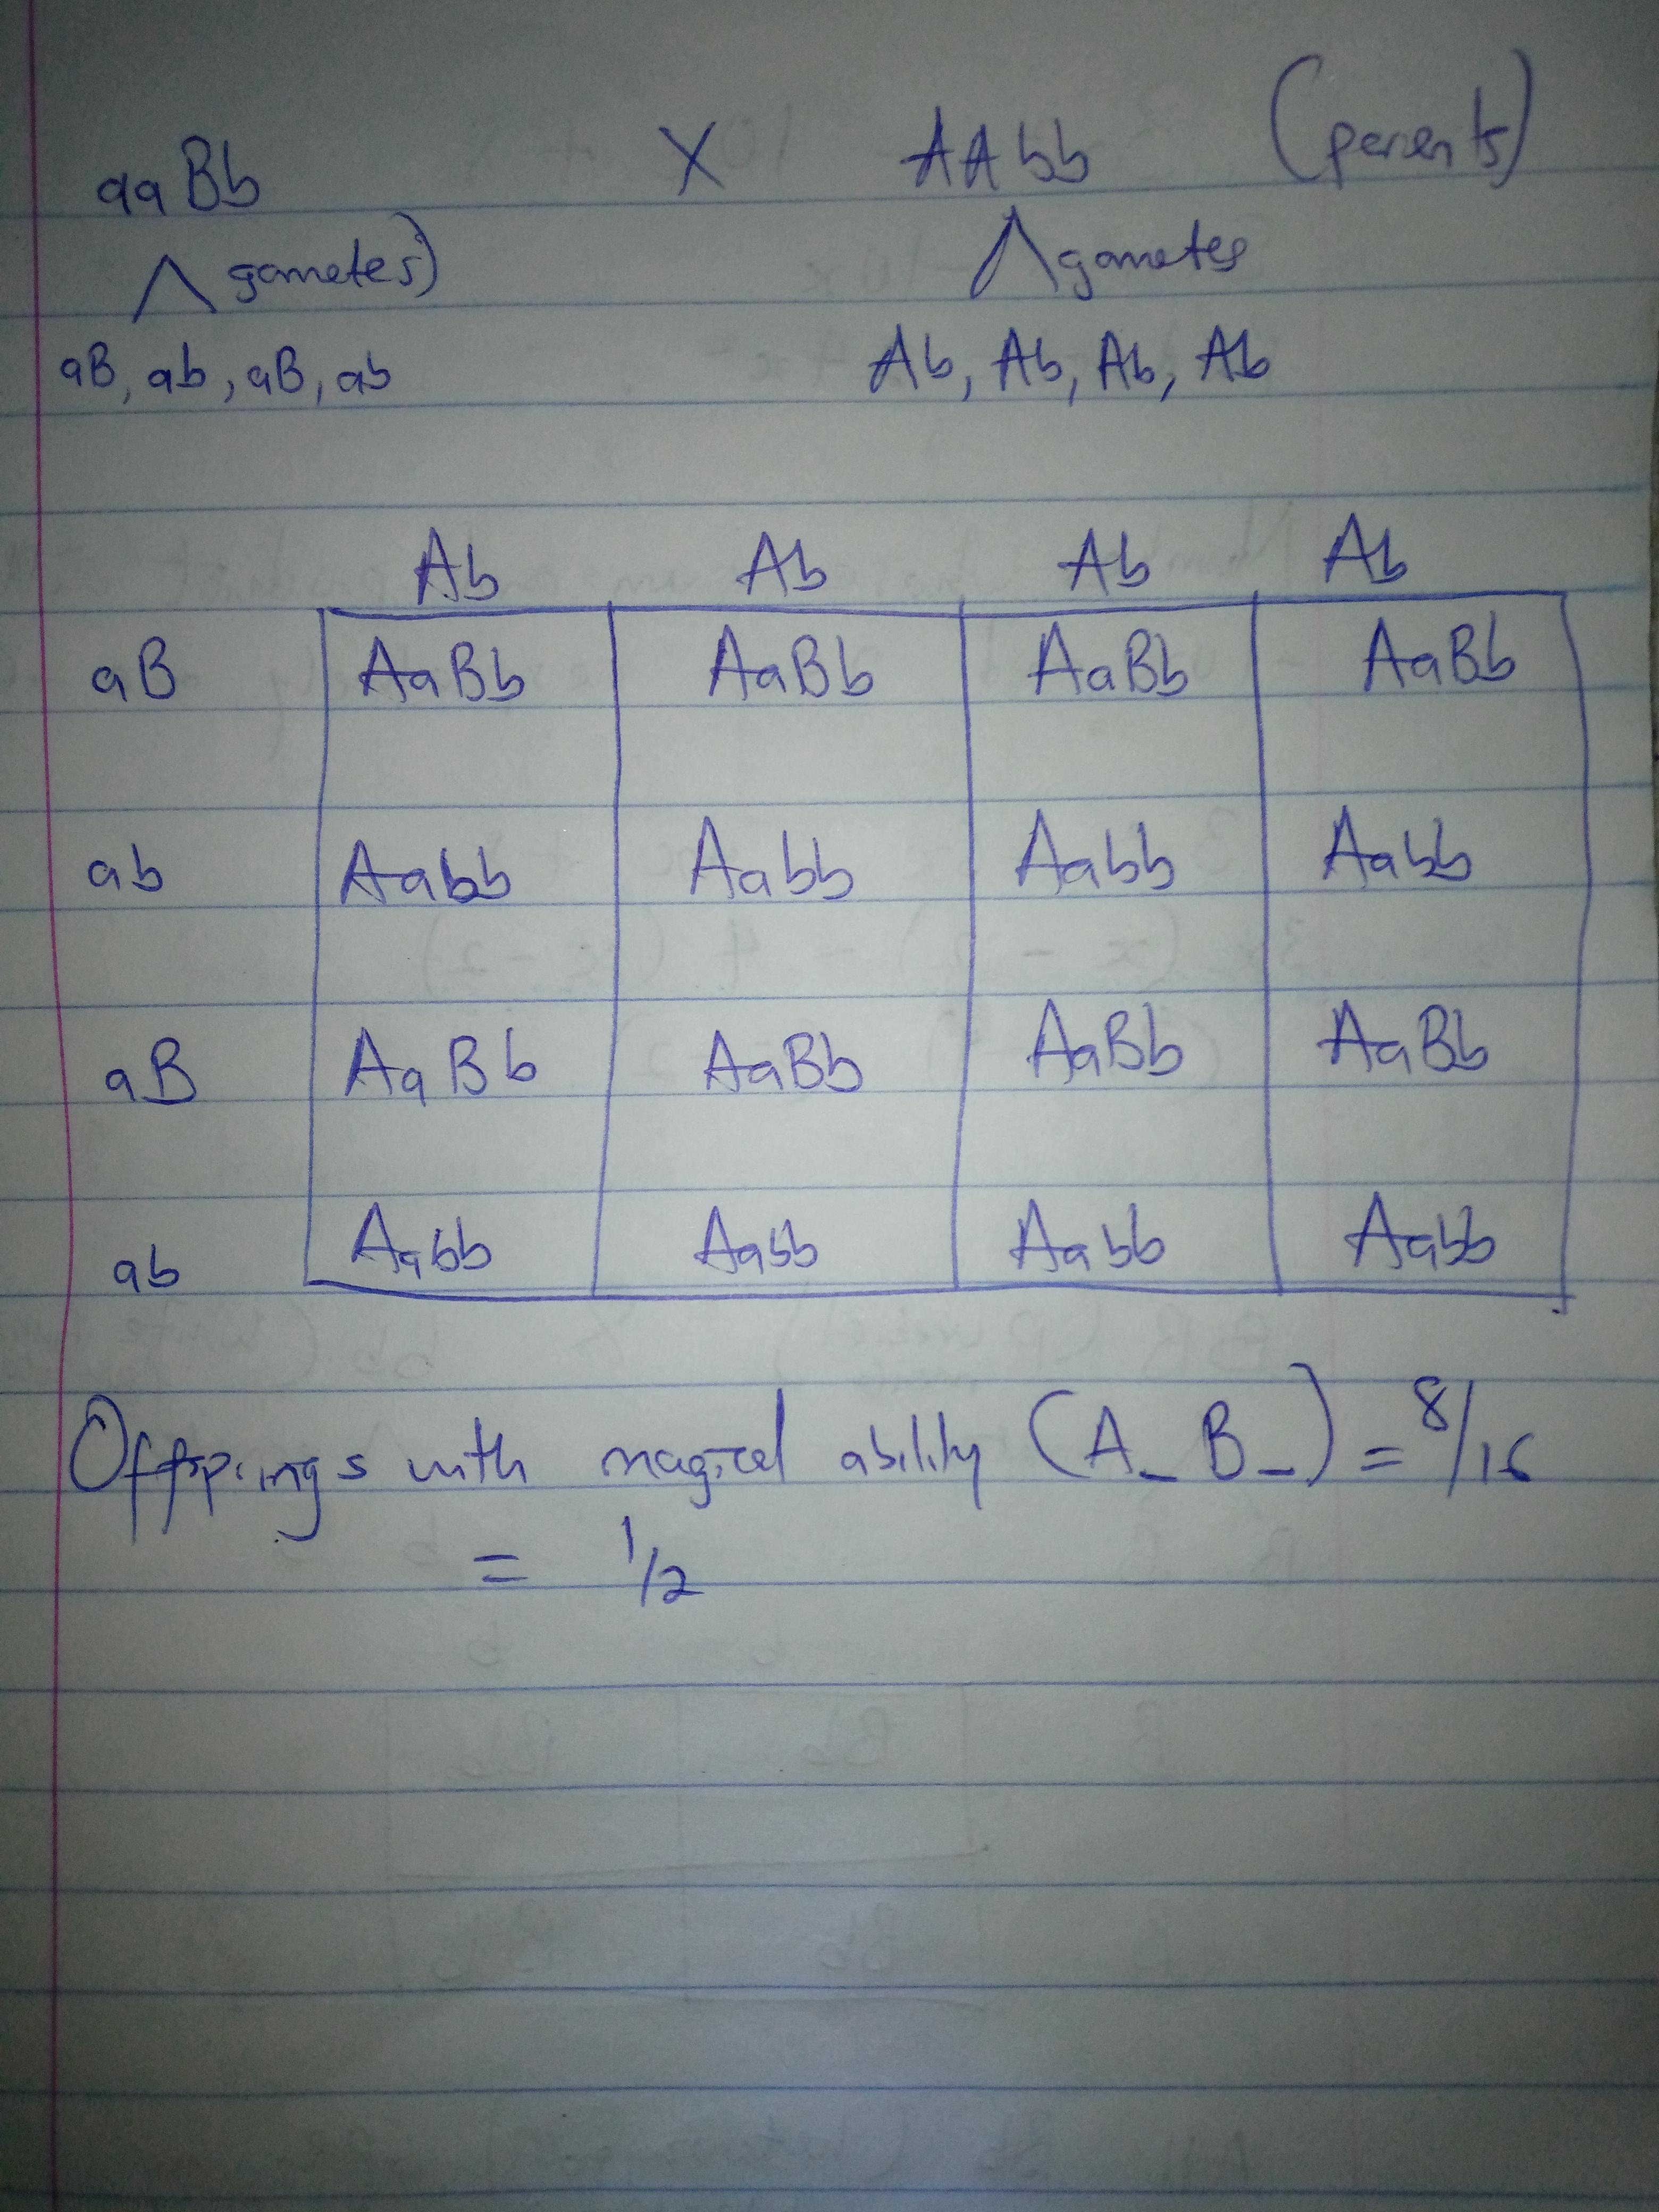 aaBb X AAbb (parents)
gametes) gametes
aB, ab, aB, ab Ab, Ab, Ab, Ab
Ab Ab Ab Ab
aB AaBb AaBb AaBb AaBb
ab Aabb Aabb Aabb Aabb
aB AaBb AaBb AaBb AaBb
ab Aabb Aabb Aabb Aabb
Offsprings with magical ability (A_ B_) = 8/16
= 1/2